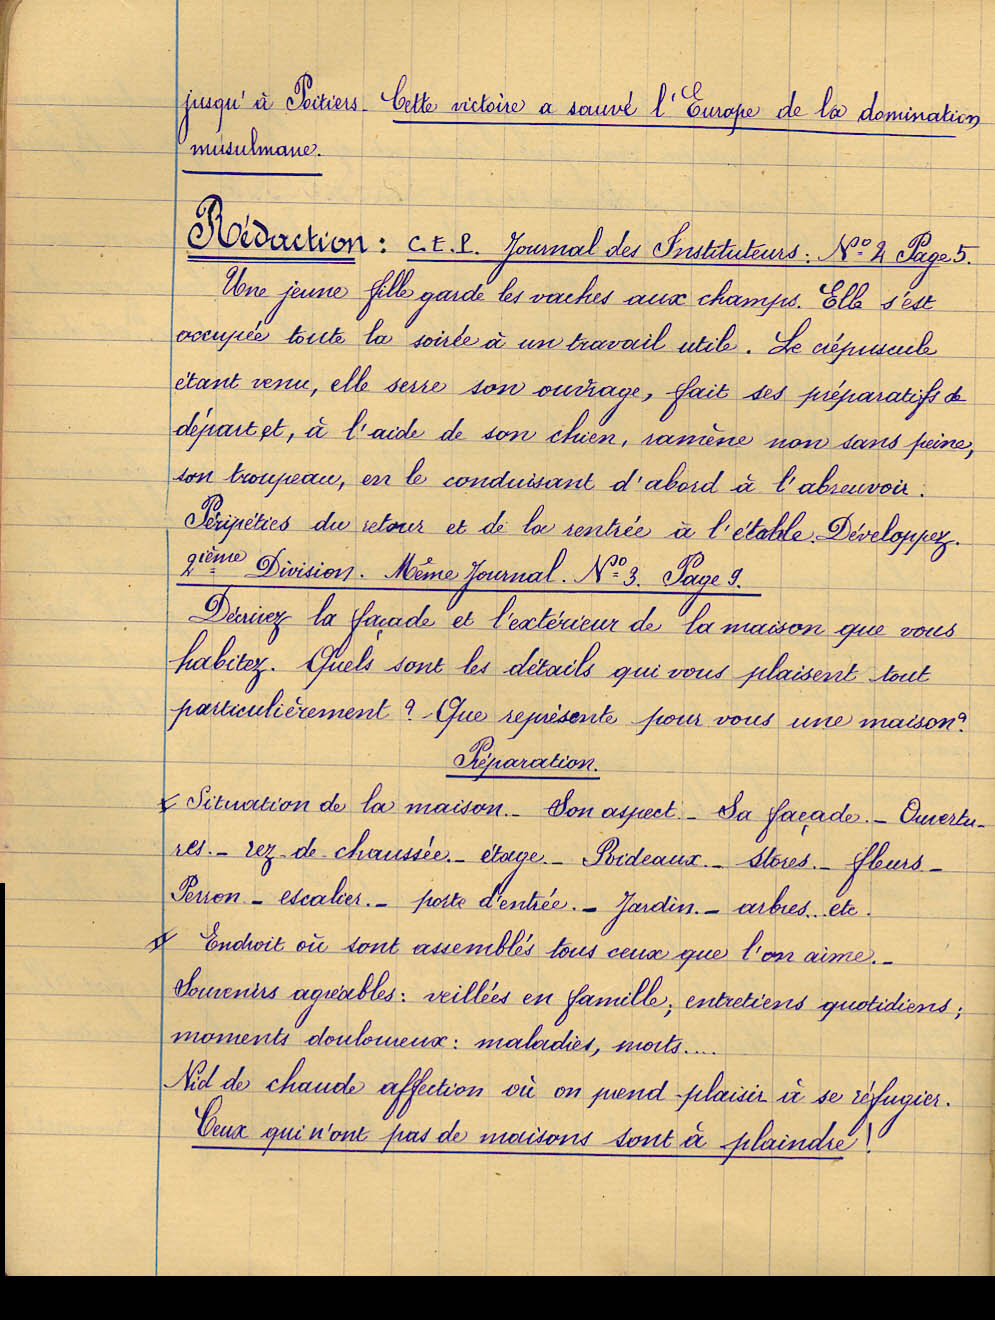 jusqu'à Poitiers - Cette victoire a sauvé l'Europe de la domination
musulmane.
Rédaction : C.E.P. Journal des Instituteurs : Nº 2 Page 5.
Une jeune fille garde les vaches aux champs. Elle s'est
occupée toute la soirée à un travail utile. Le crépuscule
étant venu, elle serre son ouvrage, fait ses préparatifs de
départ et, à l'aide de son chien, ramène non sans peine,
son troupeau, en le conduisant d'abord à l'abreuvoir.
Péripéties du retour et de la rentrée à l'étable. Développez.
2ième Division. Même Journal. Nº 3. Page 9.
Décrivez la façade et l'extérieur de la maison que vous
habitez. Quels sont les détails qui vous plaisent tout
particulièrement ? - Que représente pour vous une maison ?
Préparation.
I Situation de la maison. - Son aspect - Sa façade. - Ouvertu-
res. - rez-de-chaussée. - étage. - Rideaux. - stores. - fleurs -
Perron - escalier. - porte d'entrée. - Jardin. - arbres... etc.
II Endroit où sont assemblés tous ceux que l'on aime. -
Souvenirs agréables : veillées en famille ; entretiens quotidiens ;
moments douloureux : maladies, morts....
Nid de chaude affection où on prend plaisir à se réfugier.
Ceux qui n'ont pas de maisons sont à plaindre !